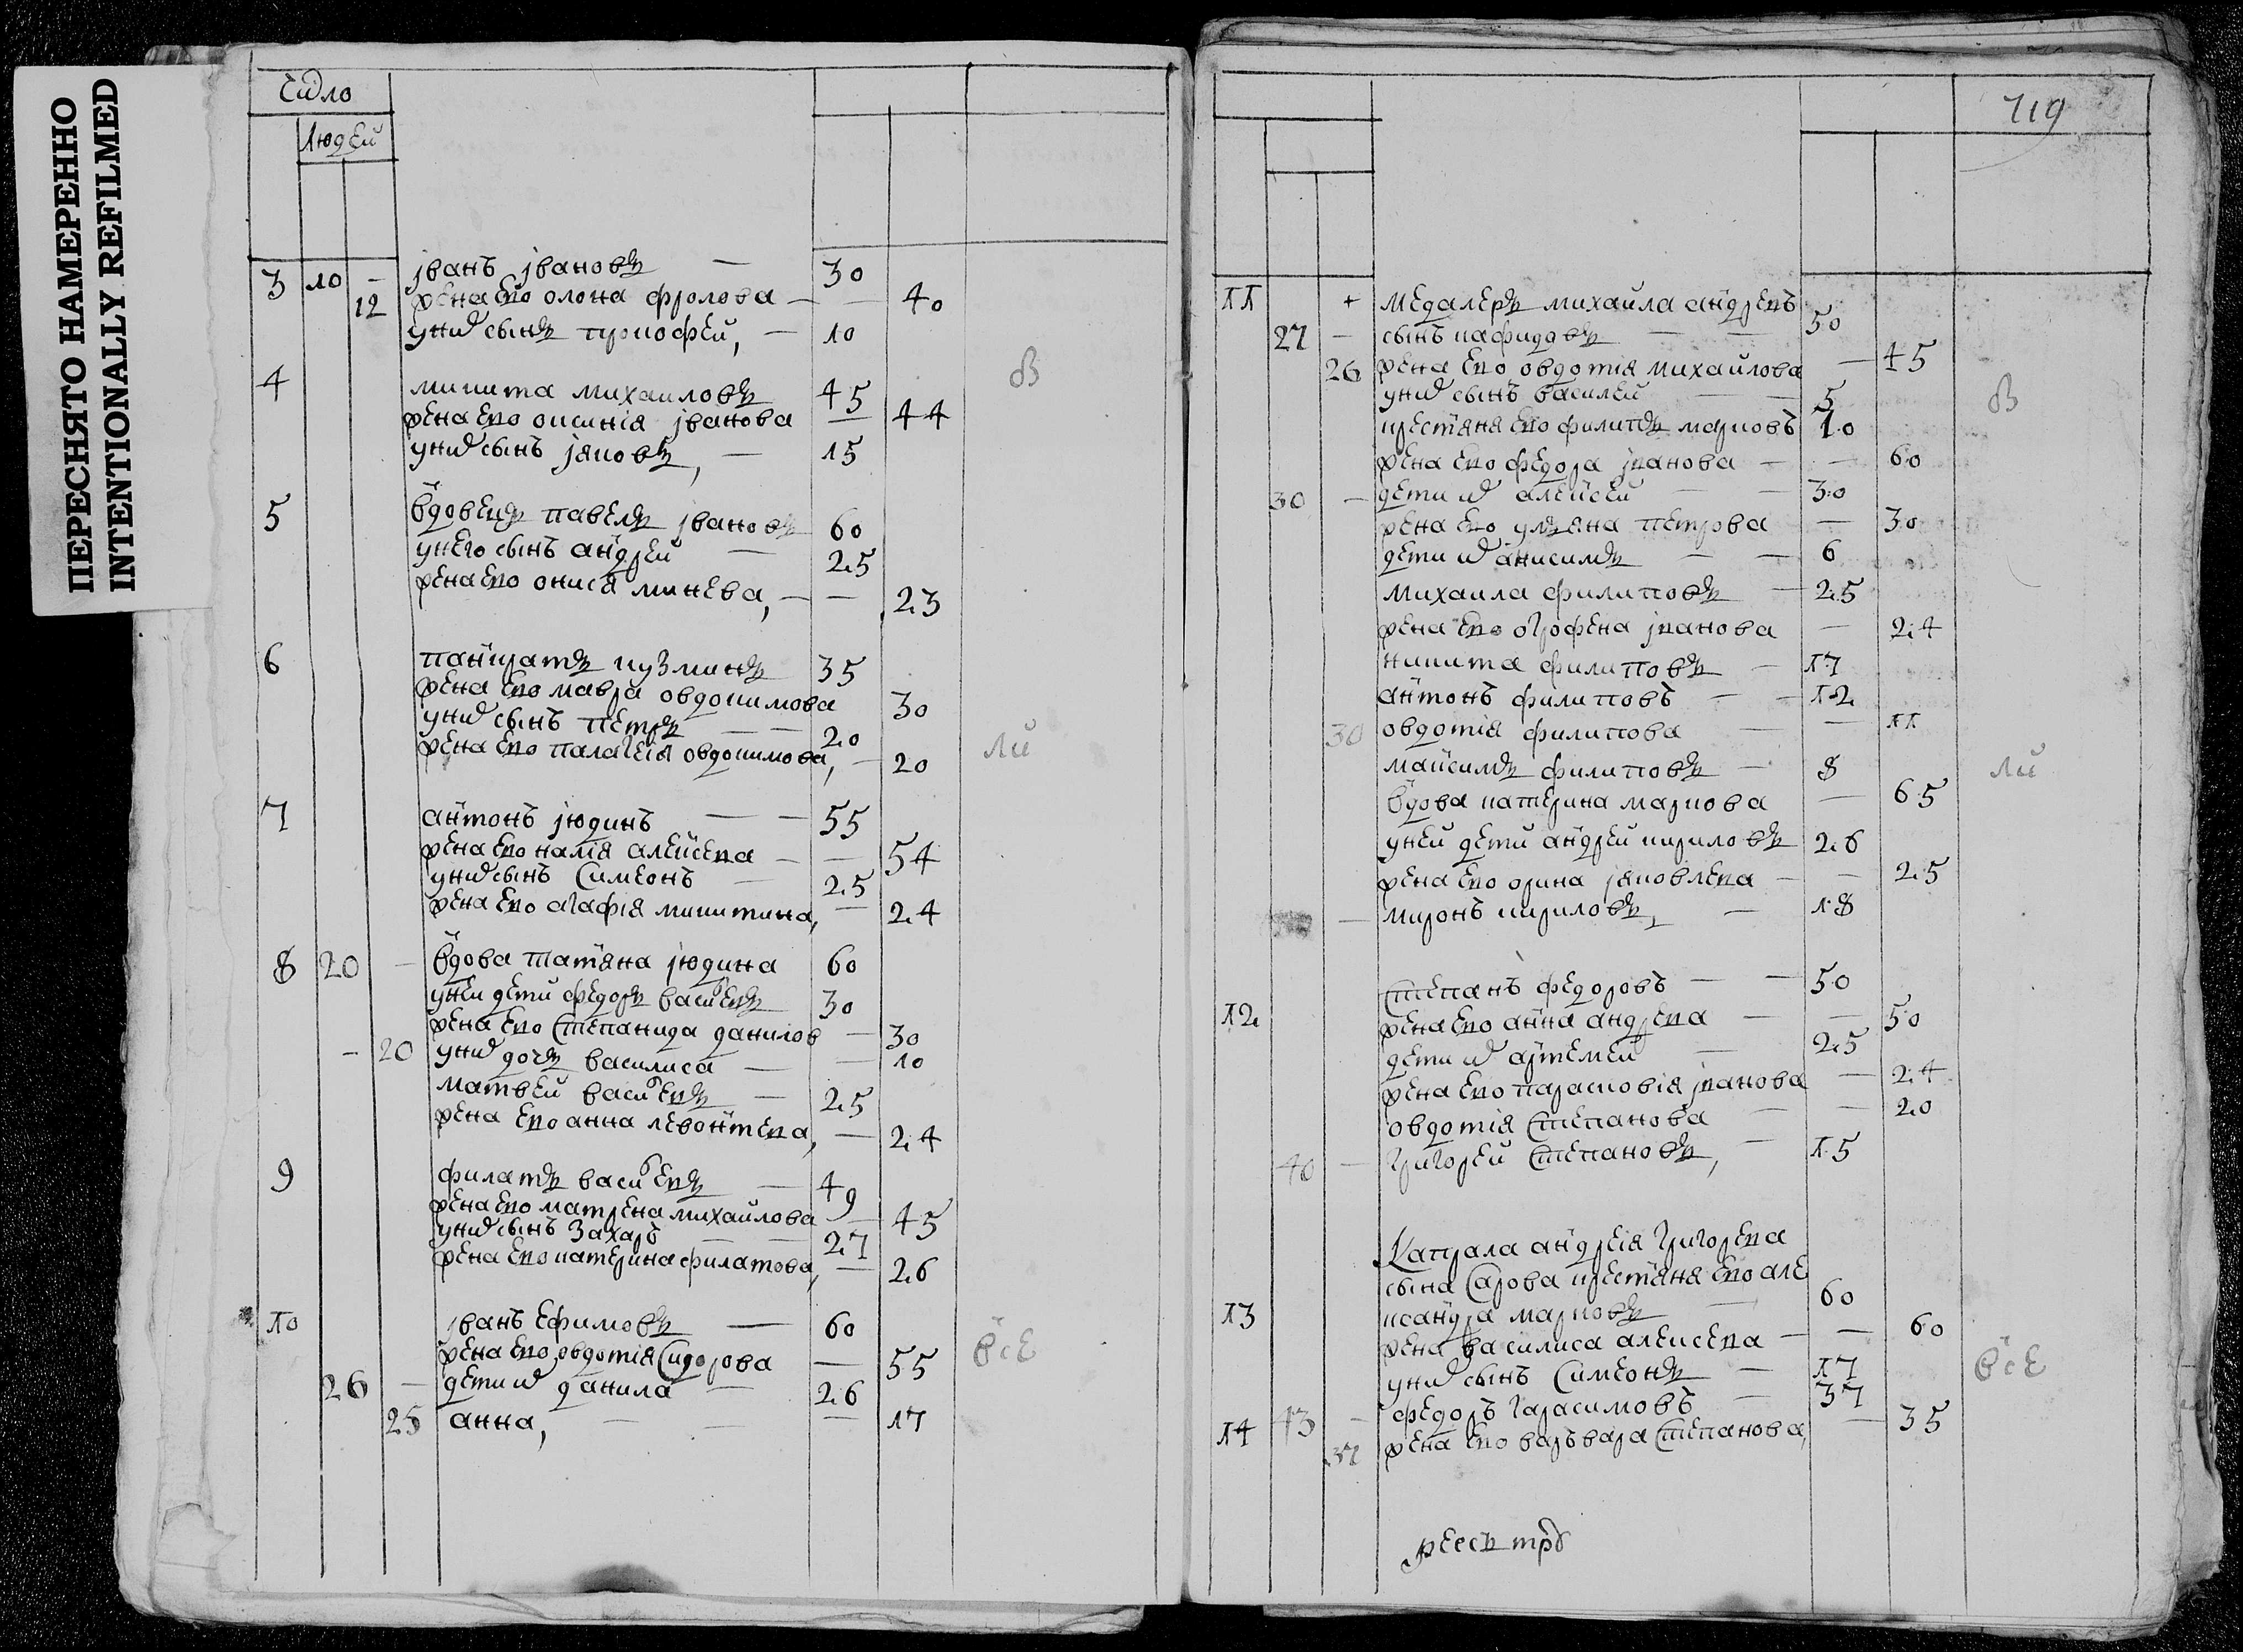 ПЕРЕСНЯТО НАМЕРЕННО
INTENTIONALLY REFILMED
Число
людей
3 10 - іванъ івановъ — 30
12 жена ево олона фролова — — 40
у них сынъ прокофеи, — 10
4 микита михаиловъ 45
жена ево оксинія іванова — 44
у них сынъ іяковъ, — 15
5 вдовецъ павелъ івановъ 60
у него сынъ андреи — 25
жена ево онися минеева, — — 23
6 панкратъ кузминъ 35
жена ево мавра овдокимова 30
у них сынъ петръ — — 20
жена ево палагеія овдокимова, — 20
7 антонъ юдинъ — — 55
жена ево налія алексеева — — 54
у них сынъ Симеонъ — 25
жена ево агафія микитина, — 24
8 20 - вдова татіяна юдина 60
у неи дети федоръ васильевъ 30
жена ево Степанида данилов — 30
- 20 у них дочь василиса — — 10
матвеи васильевъ — 25
жена ево анна левонтева, — 24
9 филатъ васильевъ — 49
жена ево матрена михаилова — 45
у них сынъ Захаръ — — 27
жена ево катерина филатова, — 26
10 іванъ ефимовъ — 60
жена ево, овдотія Сидорова — 55
26 - дети их данила — 26
25 анна, — — 17
в
ли
все
719
11 + медалеръ михаила андреевъ
27 - сынъ нафидовъ — — 50
26 жена ево овдотія михаилова — 45
у них сынъ василеи — — 5
крестяня ево филипъ марковъ 70
жена ево федора іванова — — 60
30 - дети их алексеи — — 30
жена ево уляна петрова — 30
дети их анисимъ — — 6
михаила филиповъ — 25
жена ево огрофена іванова — 24
никита филиповъ — 17
антонъ филиповъ — — 12
30 овдотія филипова — — 11
максимъ филиповъ — 8
вдова катерина маркова — 65
у неи дети андреи кириловъ 26
жена ево орина іяковлева — — 25
- миронъ кириловъ, — 18
12 Степанъ федоровъ — — 50
жена ево анна андреева — — 50
дети их артемеи — 25
жена ево парасковія іванова — 24
овдотія Степанова — — 20
40 - григореи Степановъ, — 15
Капрала андреія григорева
сына Сарова крестяня ево але
13 ксандра марковъ — 60
жена василиса алексеева — — 60
у них сынъ Симеонъ — 17
14 43 - федоръ гарасимовъ — 37
37 жена ево варъвара Степанова, — 35
в
ли
все